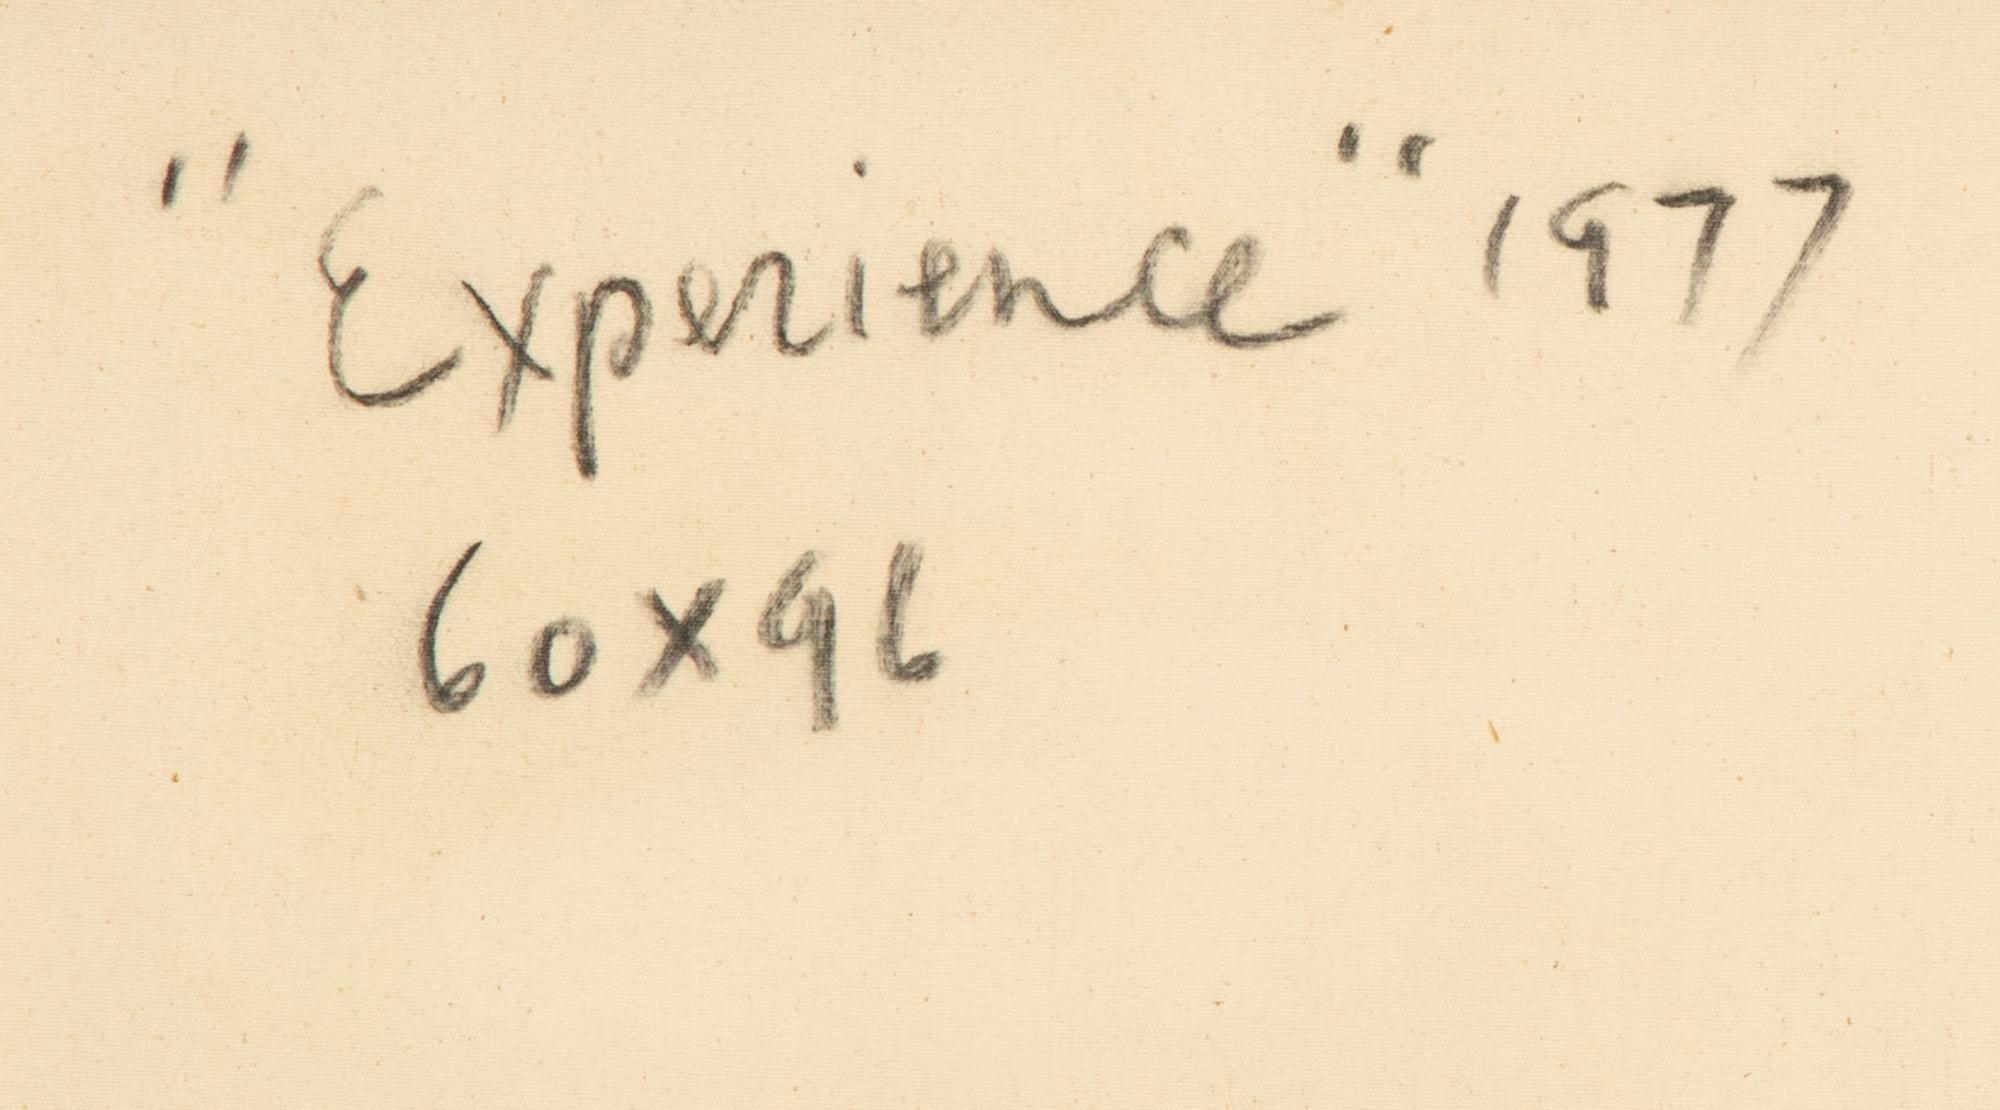 "Experience" 1977
60x96